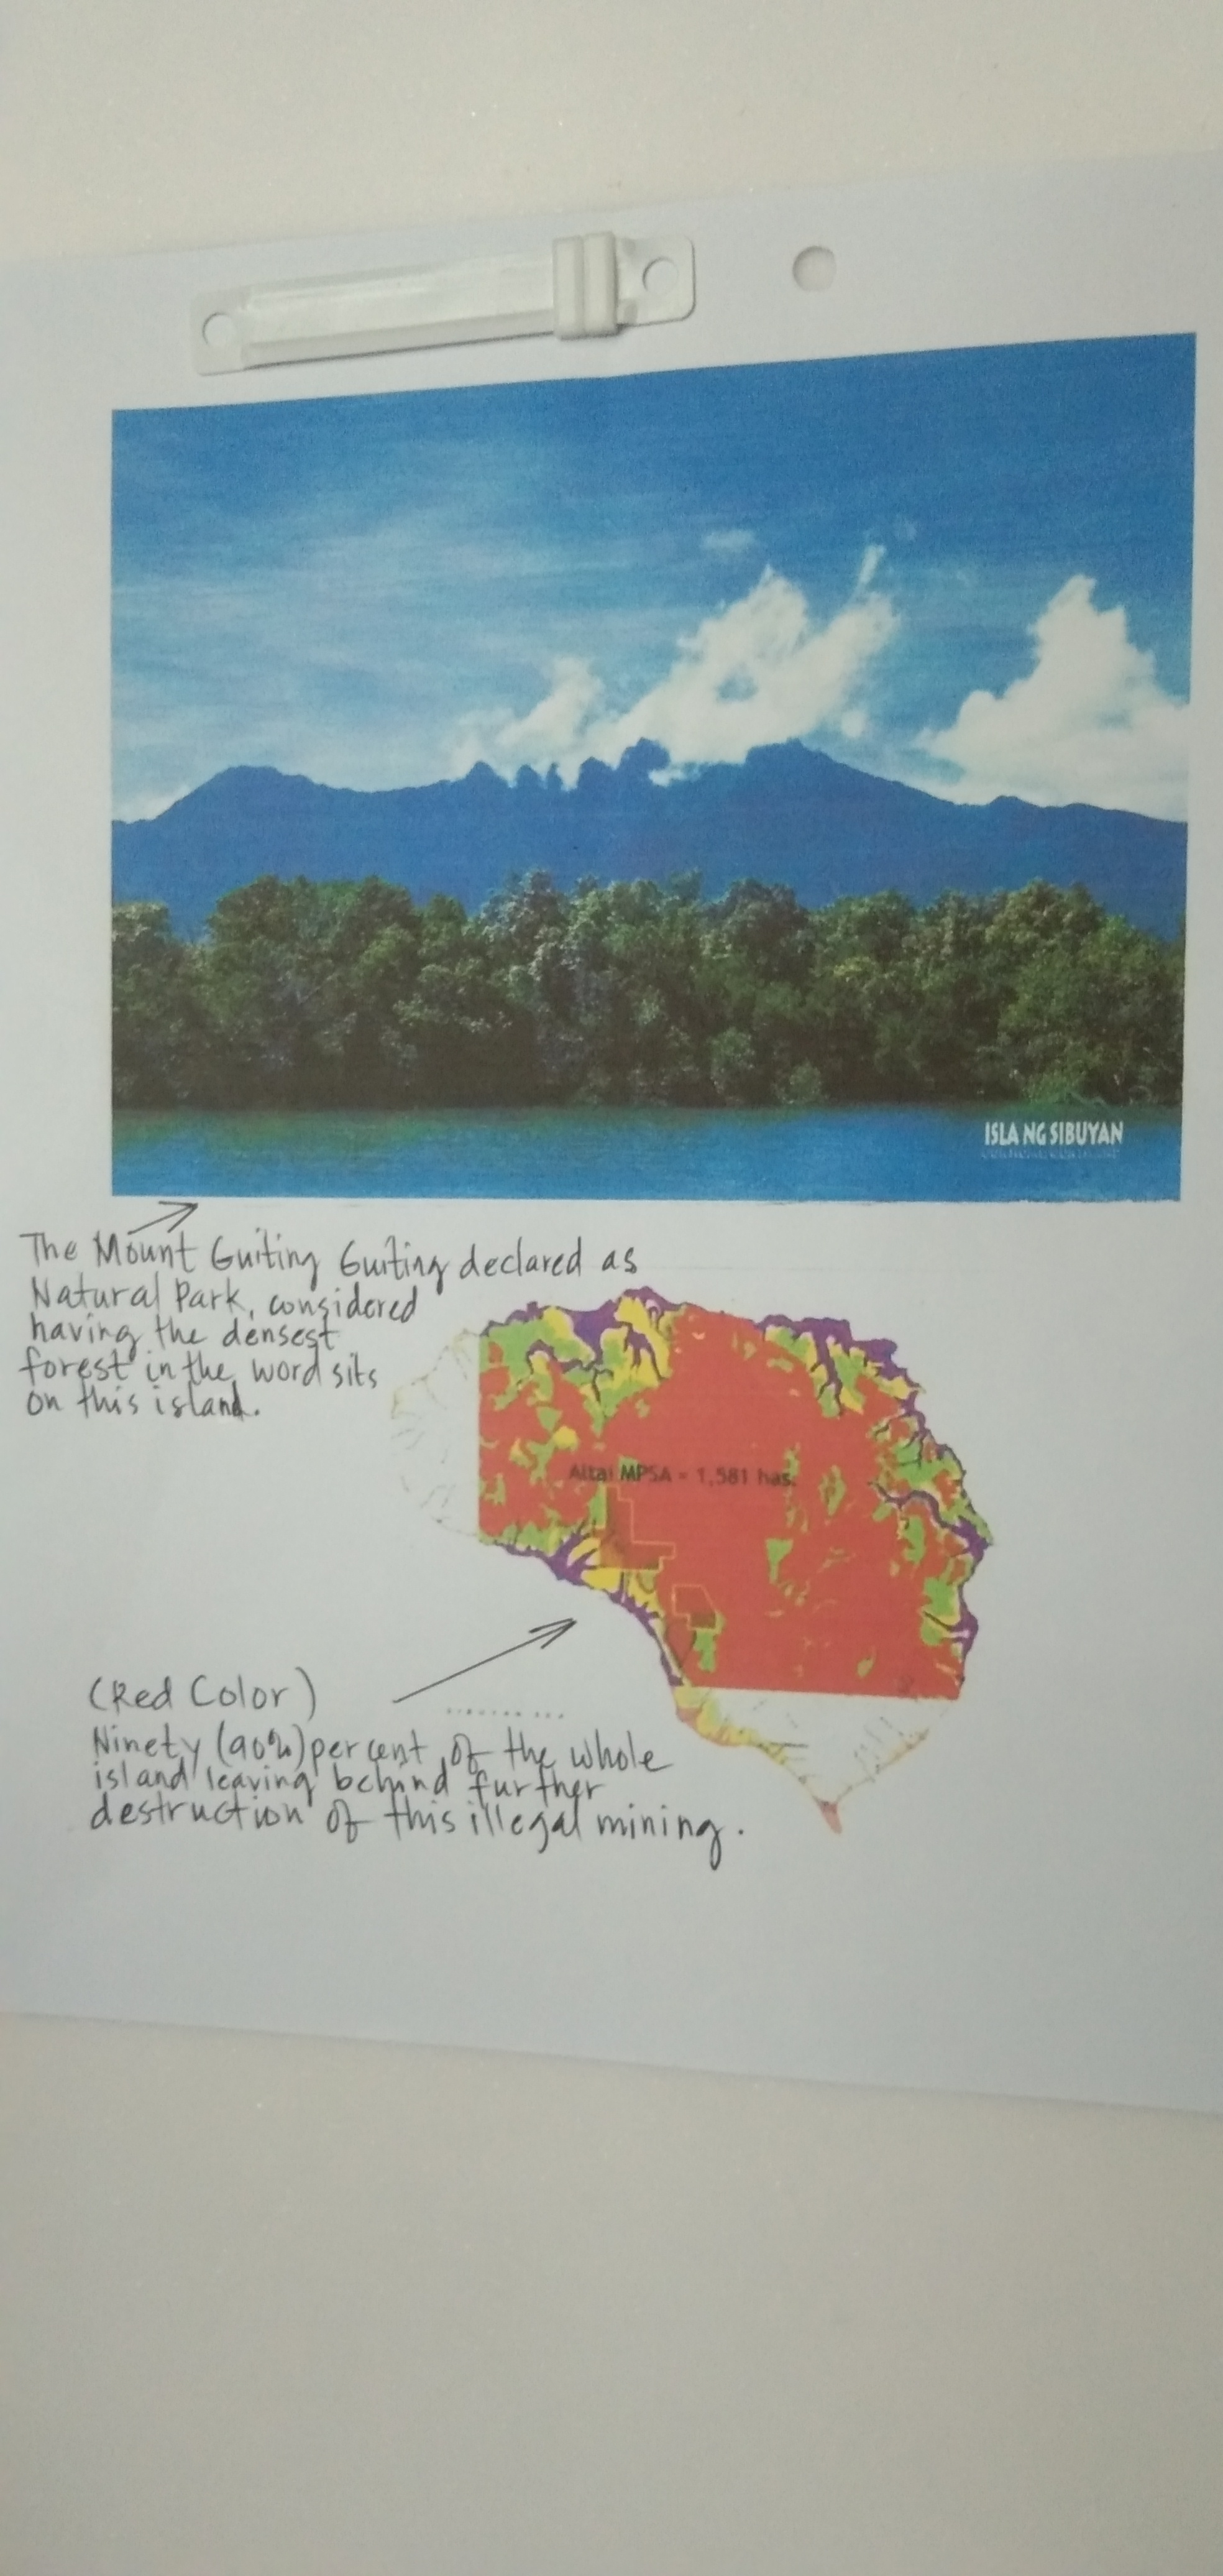 ISLA NG SIBUYAN
The Mount Guiting Guiting declared as
Natural Park, considered
having the densest
forest in the word sits
on this island.
Altai MPSA = 1,581 has.
(Red Color)
Ninety (90%) percent of the whole
island leaving behind further
destruction of this illegal mining.